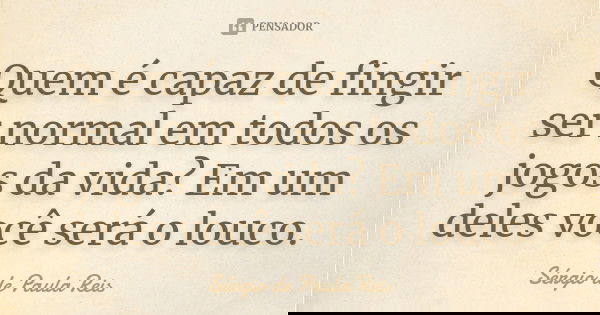 PENSADOR
Quem é capaz de fingir
ser normal em todos os
jogos da vida? Em um
deles você será o louco.
Sérgio de Paula Réis